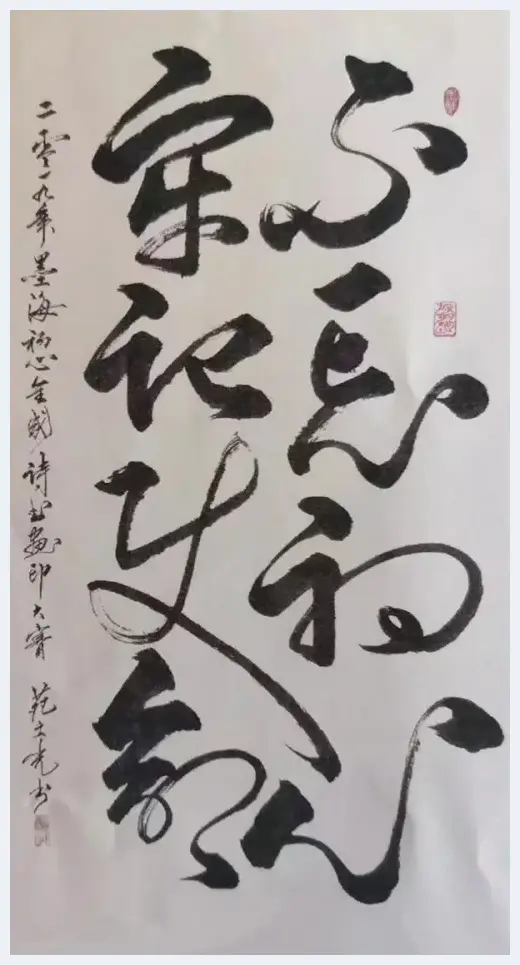 不忘初心
牢记使命
二零一九年墨海初心全国詩书画印大賽 范士光书